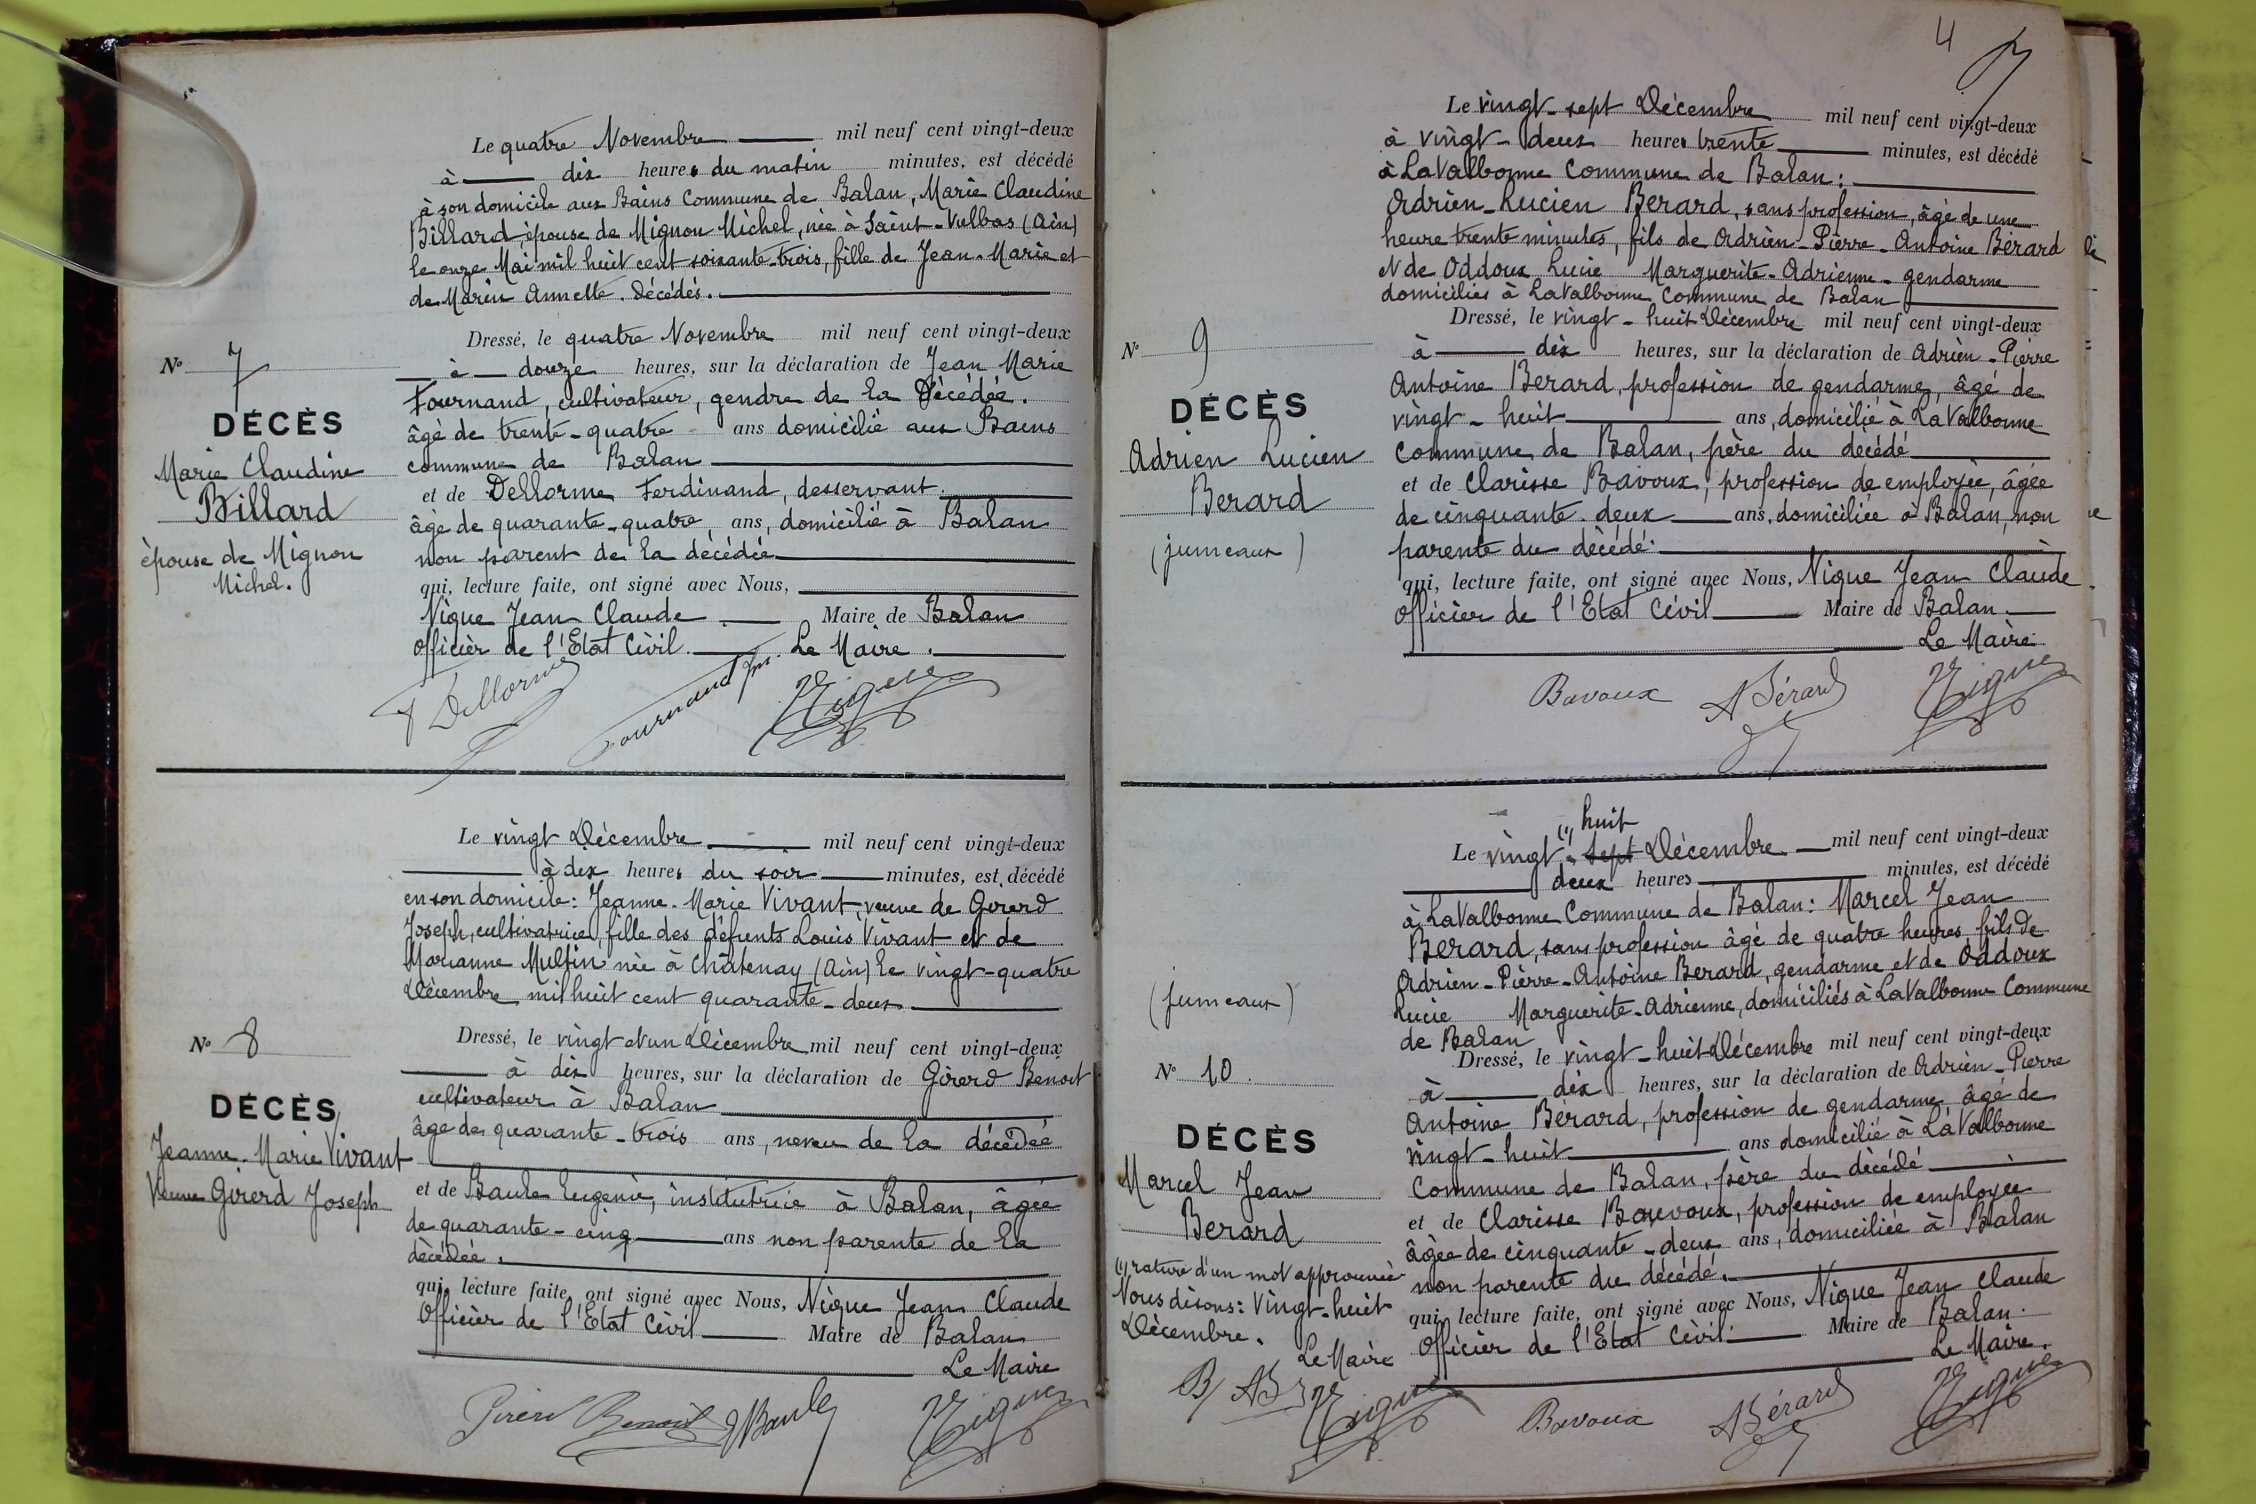 Le quatre Novembre mil neuf cent vingt-deux
à dix heures du matin minutes, est décédé
à son domicile aux Bains Commune de Balan, Marie Claudine
Billard, épouse de Mignon Michel, née à Saint-Vulbas (Ain)
le onze Mai mil huit cent soixante-trois, fille de Jean-Marie et
de Marin Annette. Décédés.
Dressé, le quatre Novembre mil neuf cent vingt-deux
à douze heures, sur la déclaration de Jean Marie
Fournand, cultivateur, gendre de la Décédée.
âgé de trente-quatre ans domicilié aux Bains
commune de Balan
et de Dellorme Ferdinand, desservant.
âgé de quarante-quatre ans, domicilié à Balan
non parent de la décédée
qui, lecture faite, ont signé avec Nous,
Nique Jean Claude Maire de Balan
Officier de l'Etat Civil. Le Maire.
F Dellorme Fournand Nique
No 7
DÉCÈS
Marie Claudine
Billard
épouse de Mignon
Michel.
Le vingt Décembre mil neuf cent vingt-deux
à dix heures du soir minutes, est décédé
en son domicile: Jeanne-Marie Vivant, veuve de Girerd
Joseph, cultivatrice, fille des défunts Louis Vivant et de
Marianne Multin née à Châtenay (Ain) le vingt-quatre
Décembre mil huit cent quarante-deux
Dressé, le vingt et un Décembre mil neuf cent vingt-deux
à dix heures, sur la déclaration de Girerd Benoit
cultivateur à Balan
âgé de quarante-trois ans, neveu de la décédée
et de Baule Eugenie, institutrice à Balan, âgée
de quarante-cinq ans non parente de la
décédée.
qui, lecture faite, ont signé avec Nous, Nique Jean Claude
Officier de l'Etat Civil Maire de Balan
Le Maire
Girerd Benoit EBaule Nique
No 8
DÉCÈS
Jeanne-Marie Vivant
Veuve Girerd Joseph
4
Le vingt-sept Décembre mil neuf cent vingt-deux
à vingt-deux heures trente minutes, est décédé
à LaValbonne Commune de Balan:
Adrien-Lucien Berard, sans profession, âgé de une
heure trente minutes, fils de Adrien-Pierre-Antoine Bérard
et de Oddoux Lucie Marguerite-Adrienne-gendarme
domiciliés à LaValbonne Commune de Balan
Dressé, le vingt-huit Décembre mil neuf cent vingt-deux
à dix heures, sur la déclaration de Adrien-Pierre
Antoine Berard, profession de gendarme, âgé de
vingt-huit ans, domicilié à LaValbonne
Commune de Balan, père du décédé
et de Clarisse Bavoux, profession de employée, âgée
de cinquante-deux ans, domiciliée à Balan, non
parente du décédé.
qui, lecture faite, ont signé avec Nous, Nique Jean Claude
Officier de l'Etat Civil Maire de Balan
Le Maire
Bavoux ABérard Nique
No 9
DÉCÈS
Adrien Lucien
Berard
(jumeaux)
huit
Le vingt (1) sept Décembre mil neuf cent vingt-deux
deux heures minutes, est décédé
à LaValbonne Commune de Balan: Marcel Jean
Berard, sans profession âgé de quatre heures fils de
Adrien-Pierre-Antoine Berard, gendarme et de Oddoux
Lucie Marguerite-Adrienne, domiciliés à LaValbonne Commune
de Balan
Dressé, le vingt-huit Décembre mil neuf cent vingt-deux
à dix heures, sur la déclaration de Adrien-Pierre
Antoine Bérard, profession de gendarme âgé de
vingt-huit ans domicilié à LaValbonne
Commune de Balan, père du décédé
et de Clarisse Bavoux, profession de employée
âgée de cinquante-deux ans, domiciliée à Balan
non parente du décédé.
qui, lecture faite, ont signé avec Nous, Nique Jean Claude
Officier de l'Etat Civil. Maire de Balan.
Le Maire.
Bavoux ABérard Nique
(jumeaux)
No 10.
DÉCÈS
Marcel Jean
Berard
(1) rature d'un mot approuvée
Nous disons: Vingt-huit
Décembre.
Le Maire
B/ AB Nique